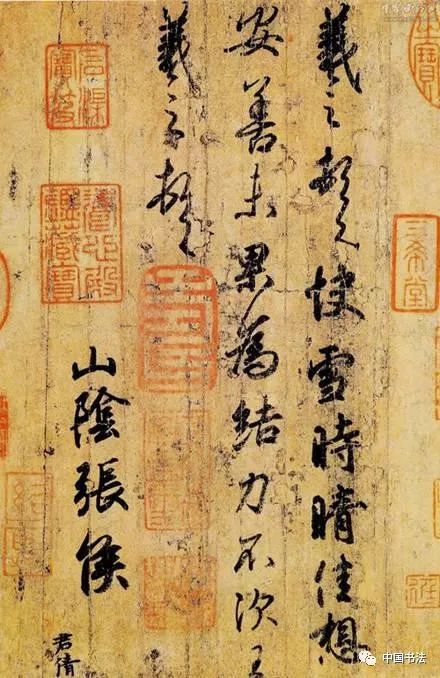 羲之頓首快雪時晴佳想
安善未果為結力不次王
羲之頓首
山陰張侯
君倩
三希堂
養心殿鑑藏寶
中国书法